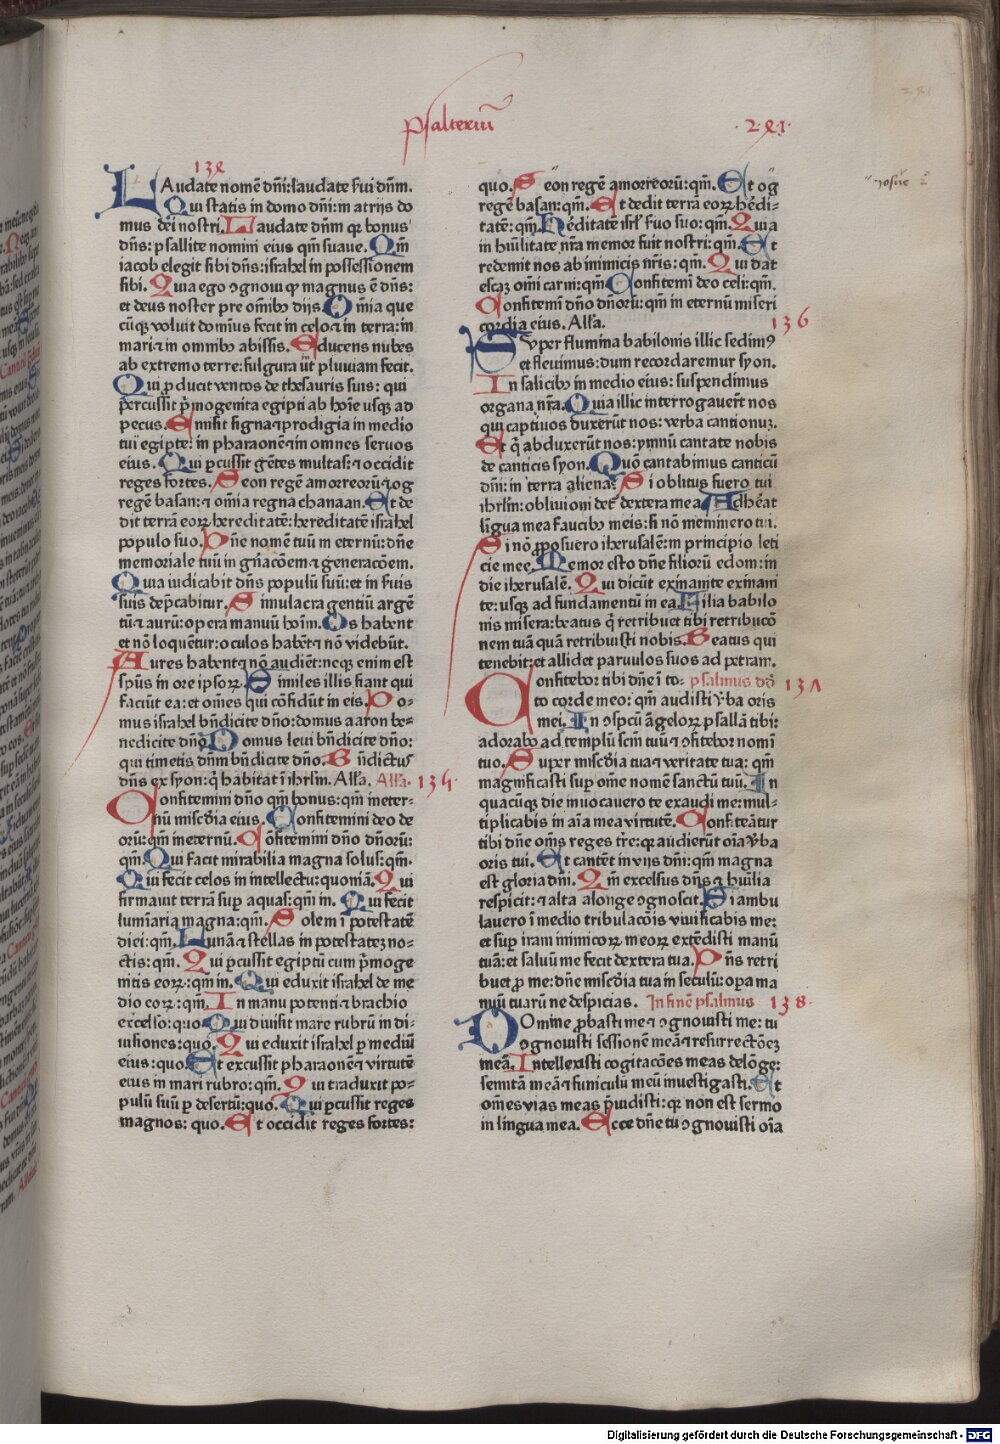 psalteriū
·2·8·1·
134
LAudate nomē dn̄i: laudate ſui dn̄m.
Qui statis in domo dn̄i: in atrijs do
mus dei nostri. Laudate dn̄m qr bonus
dn̄s: psallite nomini eius qm̄ suaue. Qm̄
iacob elegit sibi dn̄s: israhel in possessionem
sibi. Quia ego ↄgnoui qp magnus ē dn̄s:
et deus noster pre omībꝰ dijs. Omīa que
cūqꝫ voluit domīus fecit in celo ⁊ in terra: in
mari ⁊ in omnibꝰ abissis. Educens nubes
ab extremo terre: fulgura in pluuiam fecit.
Qui ꝓducit ventos de thesauris suis: qui
percussit pͥmogenita egipti ab hoīe usqꝫ ad
pecus. Emisit signa ⁊ prodigia in medio
tui egipte: in pharaonē ⁊ in omnes seruos
eius. Qui ꝑcussit gētes multas: ⁊ occidit
reges fortes. Seon regē amorreorū ⁊ og
regē basan: ⁊ omīa regna chanaan. Et de
dit terrā eoꝝ hereditatē: hereditatē israhel
populo suo. Dn̄e nomē tuū in eternū: dn̄e
memoriale tuū in gn̄acōem ⁊ generacōem.
Quia iudicabit dn̄s populū suū: et in suis
suis dep̄cabitur. Simulacra gentiū argē
tū ⁊ aurū: opera manuū hoīm. Os habent
et nō loquētur: oculos habēt ⁊ nō videbūt.
Aures habent ⁊ nō audiēt: neqꝫ enim est
sp̄us in ore ipsoꝝ. Similes illis fiant qui
faciūt ea: et om̄es qui cōfidūt in eis. Do-
mus israhel bn̄dicite dn̄o: domus aaron be-
nedicite dn̄o. Domus leui bn̄dicite dn̄o:
qui timetis dn̄m bn̄dicite dn̄o. Bn̄dictus
dn̄s ex syon: q̄ habitat ī ihrl̄m. Alla. Alla. 135.
Confitemini dn̄o qm̄ bonus: qm̄ in eter-
nū misc̄dia eius. Confitemini deo de
orū: qm̄ in eternū. Cōfitemini dn̄o dn̄orū:
qm̄. Qui facit mirabilia magna solus: qm̄.
Qui fecit celos in intellectu: quoniā. Qui
firmauit terrā sup aquas: qm̄ in. Qui fecit
lumīaria magna: qm̄. Solem ī potestatē
diei: qm̄. Lunā ⁊ stellas in potestateꝫ no-
ctis: qm̄. Qui ꝑcussit egiptū cum pͥmoge
nitis eoꝝ: qm̄ in. Qui eduxit israhel de me
dio eoꝝ: qm̄. In manu potenti ⁊ brachio
excelso: quo. Qui diuisit mare rubrū in di-
uisiones: quo. Qui eduxit israhel ꝑ mediū
eius: quo. Et excussit pharaonē ⁊ virtutē
eius in mari rubro: qm̄. Qui traduxit po-
pulū suū ꝑ desertū: quo. Qui ꝑcussit reges
magnos: quo. Et occidit reges fortes:
quo. Seon regē amorreorū: qm̄. Et og
regē basan: qm̄. Et dedit terrā eoꝝ hēdi-
tatē: qm̄. Hēditatē isrl̄ suo suo: qm̄. Quia
in hūilitate nr̄a memor fuit nostri: qm̄. Et
redemit nos ab inimicis nr̄is: qm̄. Qui dat
escaꝫ omī carni: qm̄. Confitemī deo celi: qm̄.
Confitemī dn̄o dn̄orū: qm̄ in eternū miseri
cordia eius. Alla.
136
Super flumina babilonis illic sedimꝰ
et fleuimus: dum recordaremur syon.
In salicibꝰ in medio eius: suspendimus
organa nr̄a. Quia illic interrogauerūt nos
qui captiuos duxerūt nos: verba cantionuꝫ.
Et q̄ abduxerūt nos: ymnū cantate nobis
de canticis syon. Quō cantabimus canticū
dn̄i: in terra aliena. Si oblitus fuero tui
ihrl̄m: obliuioni det̄ dextera mea. Adheāt
līgua mea faucibꝰ meis: si nō meminero tui.
Si nō ꝓposuero iherusalē: in principio leti
cie mee. Memor esto dn̄e filiorū edom: in
die iherusalē. Qui dicūt exinanite exinani
te: usqꝫ ad fundamentū in ea. Filia babilo
nis misera: beatus q̄ retribuet tibi retribucō
nem tuā quā retribuisti nobis. Beatus qui
tenebit: et allidet paruulos suos ad petram.
Confitebor tibi dn̄e ī to- psalmus dd 137
to corde meo: qm̄ audisti v̄ba oris
mei. In ↄspcū āgeloꝝ psallā tibi:
adorabo ad templū scm̄ tuū ⁊ ↄfitebor nomī
tuo. Super misc̄dia tua ⁊ veritate tua: qm̄
magnificasti sup om̄e nomē sanctū tuū. In
quacūqꝫ die inuocauero te exaudi me: mul-
tiplicabis in aīa mea virtutē. Confiteātur
tibi dn̄e om̄s reges tr̄e: qr audierūt oīa v̄ba
oris tui. Et cantēt in vijs dn̄i: qm̄ magna
est gloria dn̄i. Qm̄ excelsus dn̄s ⁊ hūilia
respicit: ⁊ alta a longe ↄgnoscit. Si ambu
lauero ī medio tribulacōis viuificabis me:
et sup iram inimicoꝝ meoꝝ extēdisti manū
tuā: et saluū me fecit dextera tua. Dn̄s retri
buet ꝓ me: dn̄e misc̄dia tua in seculū: opa ma
nuū tuarū ne despicias. In finē psalmus 138.
Domine ꝓbasti me ⁊ ↄgnouisti me: tu
ↄgnouisti sessionē meā ⁊ resurrectōeꝫ
meā. Intellexisti cogitacōes meas de lōge:
semitā meā ⁊ funiculū meū inuestigasti. Et
om̄es vias meas p̄uidisti: qr non est sermo
in lingua mea. Ecce dn̄e tu ↄgnouisti oīa
Digitalisierung gefördert durch die Deutsche Forschungsgemeinschaft - DFG